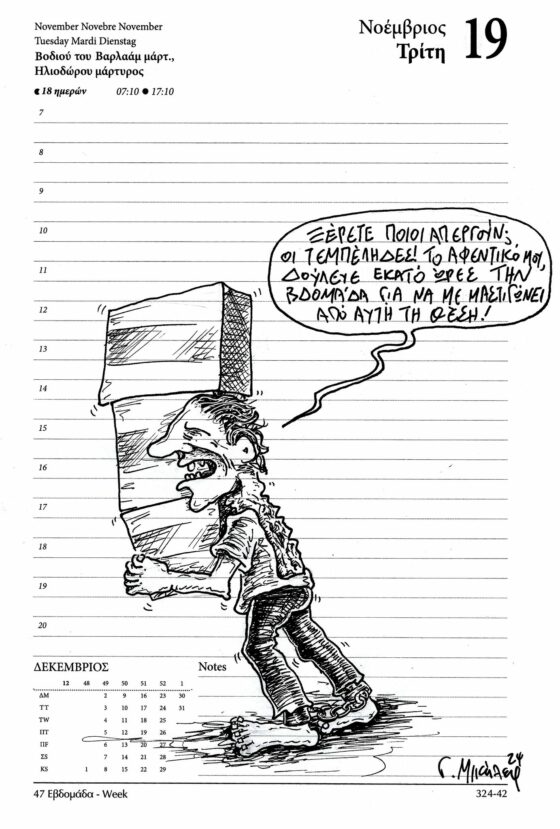 November Novebre November
Tuesday Mardi Dienstag
Βοδιού του Βαρλαάμ μάρτ.,
Ηλιοδώρου μάρτυρος
18 ημερών 07:10 ● 17:10
Νοέμβριος
Τρίτη
19
7
8
9
10
11
12
13
14
15
16
17
18
19
20
ΞΕΡΕΤΕ ΠΟΙΟΙ ΑΠΕΡΓΟΥΝ;
ΟΙ ΤΕΜΠΕΛΗΔΕΣ! ΤΟ ΑΦΕΝΤΙΚΟ ΜΟΥ,
ΔΟΥΛΕΥΕ ΕΚΑΤΟ ΩΡΕΣ ΤΗΝ
ΒΔΟΜΑΔΑ ΓΙΑ ΝΑ ΜΕ ΜΑΣΤΙΓΩΝΕΙ
ΑΠΟ ΑΥΤΗ ΤΗ ΘΕΣΗ!
ΔΕΚΕΜΒΡΙΟΣ
12 48 49 50 51 52 1
ΔΜ 2 9 16 23 30
ΤΤ 3 10 17 24 31
ΤW 4 11 18 25
ΠΤ 5 12 19 26
ΠF 6 13 20 27
ΣS 7 14 21 28
ΚS 1 8 15 22 29
Notes
24
47 Εβδομάδα - Week
324-42